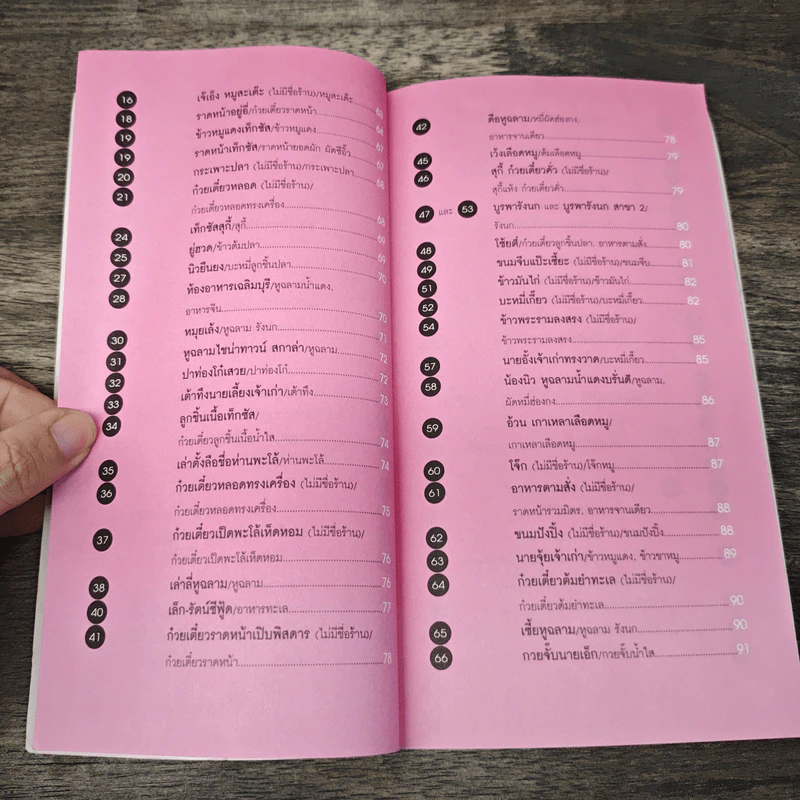 16 เจ๊เอ็ง หมูสะเต๊ะ (ไม่มีชื่อร้าน)/หมูสะเต๊ะ 65
18 ราดหน้าอยู่อี่/ก๋วยเตี๋ยวราดหน้า 66
19 ข้าวหมูแดงเท็กซัส/ข้าวหมูแดง 67
19 ราดหน้าเท็กซัส/ราดหน้ายอดผัก ผัดซีอิ๊ว 67
20 กระเพาะปลา (ไม่มีชื่อร้าน)/กระเพาะปลา 68
21 ก๋วยเตี๋ยวหลอด (ไม่มีชื่อร้าน)/
ก๋วยเตี๋ยวหลอดทรงเครื่อง 68
24 เท็กซัสสุกี้/สุกี้ 69
25 ยู่ฮวด/ข้าวต้มปลา 69
27 นิวยืนยง/บะหมี่ลูกชิ้นปลา 70
28 ห้องอาหารเฉลิมบุรี/หูฉลามน้ำแดง,
อาหารจีน 70
30 หมุยเล้ง/หูฉลาม รังนก 71
31 หูฉลามไชน่าทาวน์ สกาล่า/หูฉลาม 72
32 ปาท่องโก๋เสวย/ปาท่องโก๋ 72
33 เต้าทึงนายเลี้ยงเจ้าเก่า/เต้าทึง 73
34 ลูกชิ้นเนื้อเท็กซัส/
ก๋วยเตี๋ยวลูกชิ้นเนื้อน้ำใส 74
35 เล่าตั้งลือชื่อห่านพะโล้/ห่านพะโล้ 74
36 ก๋วยเตี๋ยวหลอดทรงเครื่อง (ไม่มีชื่อร้าน)/
ก๋วยเตี๋ยวหลอดทรงเครื่อง 75
37 ก๋วยเตี๋ยวเป็ดพะโล้เห็ดหอม (ไม่มีชื่อร้าน)/
ก๋วยเตี๋ยวเป็ดพะโล้เห็ดหอม 76
38 เล่าลี่หูฉลาม/หูฉลาม 76
40 เล็ก-รัตน์ซีฟู้ด/อาหารทะเล 77
41 ก๋วยเตี๋ยวราดหน้าเปิบพิสดาร (ไม่มีชื่อร้าน)/
ก๋วยเตี๋ยวราดหน้า 78
42 คือหูฉลาม/หมี่ผัดฮ่องกง,
อาหารจานเดียว 78
45 เว้งเลือดหมู/ต้มเลือดหมู 79
46 สุกี้ ก๋วยเตี๋ยวคั่ว (ไม่มีชื่อร้าน)/
สุกี้แห้ง ก๋วยเตี๋ยวคั่ว 79
47 และ 53 บูรพารังนก และ บูรพารังนก สาขา 2/
รังนก 80
48 โซ้ยตี่/ก๋วยเตี๋ยวลูกชิ้นปลา, อาหารตามสั่ง 80
49 ขนมจีบแป๊ะเซี้ยะ (ไม่มีชื่อร้าน)/ขนมจีบ 81
51 ข้าวมันไก่ (ไม่มีชื่อร้าน)/ข้าวมันไก่ 82
52 บะหมี่เกี๊ยว (ไม่มีชื่อร้าน)/บะหมี่เกี๊ยว 82
54 ข้าวพระรามลงสรง (ไม่มีชื่อร้าน)/
ข้าวพระรามลงสรง 85
57 นายอั้งเจ้าเก่าทรงวาด/บะหมี่เกี๊ยว 85
58 น้องนิว หูฉลามน้ำแดงบรั่นดี/หูฉลาม,
ผัดหมี่ฮ่องกง 86
59 อ้วน เกาเหลาเลือดหมู/
เกาเหลาเลือดหมู 87
60 โจ๊ก (ไม่มีชื่อร้าน)/โจ๊กหมู 87
61 อาหารตามสั่ง (ไม่มีชื่อร้าน)/
ราดหน้ารวมมิตร, อาหารจานเดียว 88
62 ขนมปังปิ้ง (ไม่มีชื่อร้าน)/ขนมปังปิ้ง 88
63 นายจุ้ยเจ้าเก่า/ข้าวหมูแดง, ข้าวขาหมู 89
64 ก๋วยเตี๋ยวต้มยำทะเล (ไม่มีชื่อร้าน)/
ก๋วยเตี๋ยวต้มยำทะเล 90
65 เซี้ยหูฉลาม/หูฉลาม รังนก 90
66 กวยจั๊บนายเอ็ก/กวยจั๊บน้ำใส 91